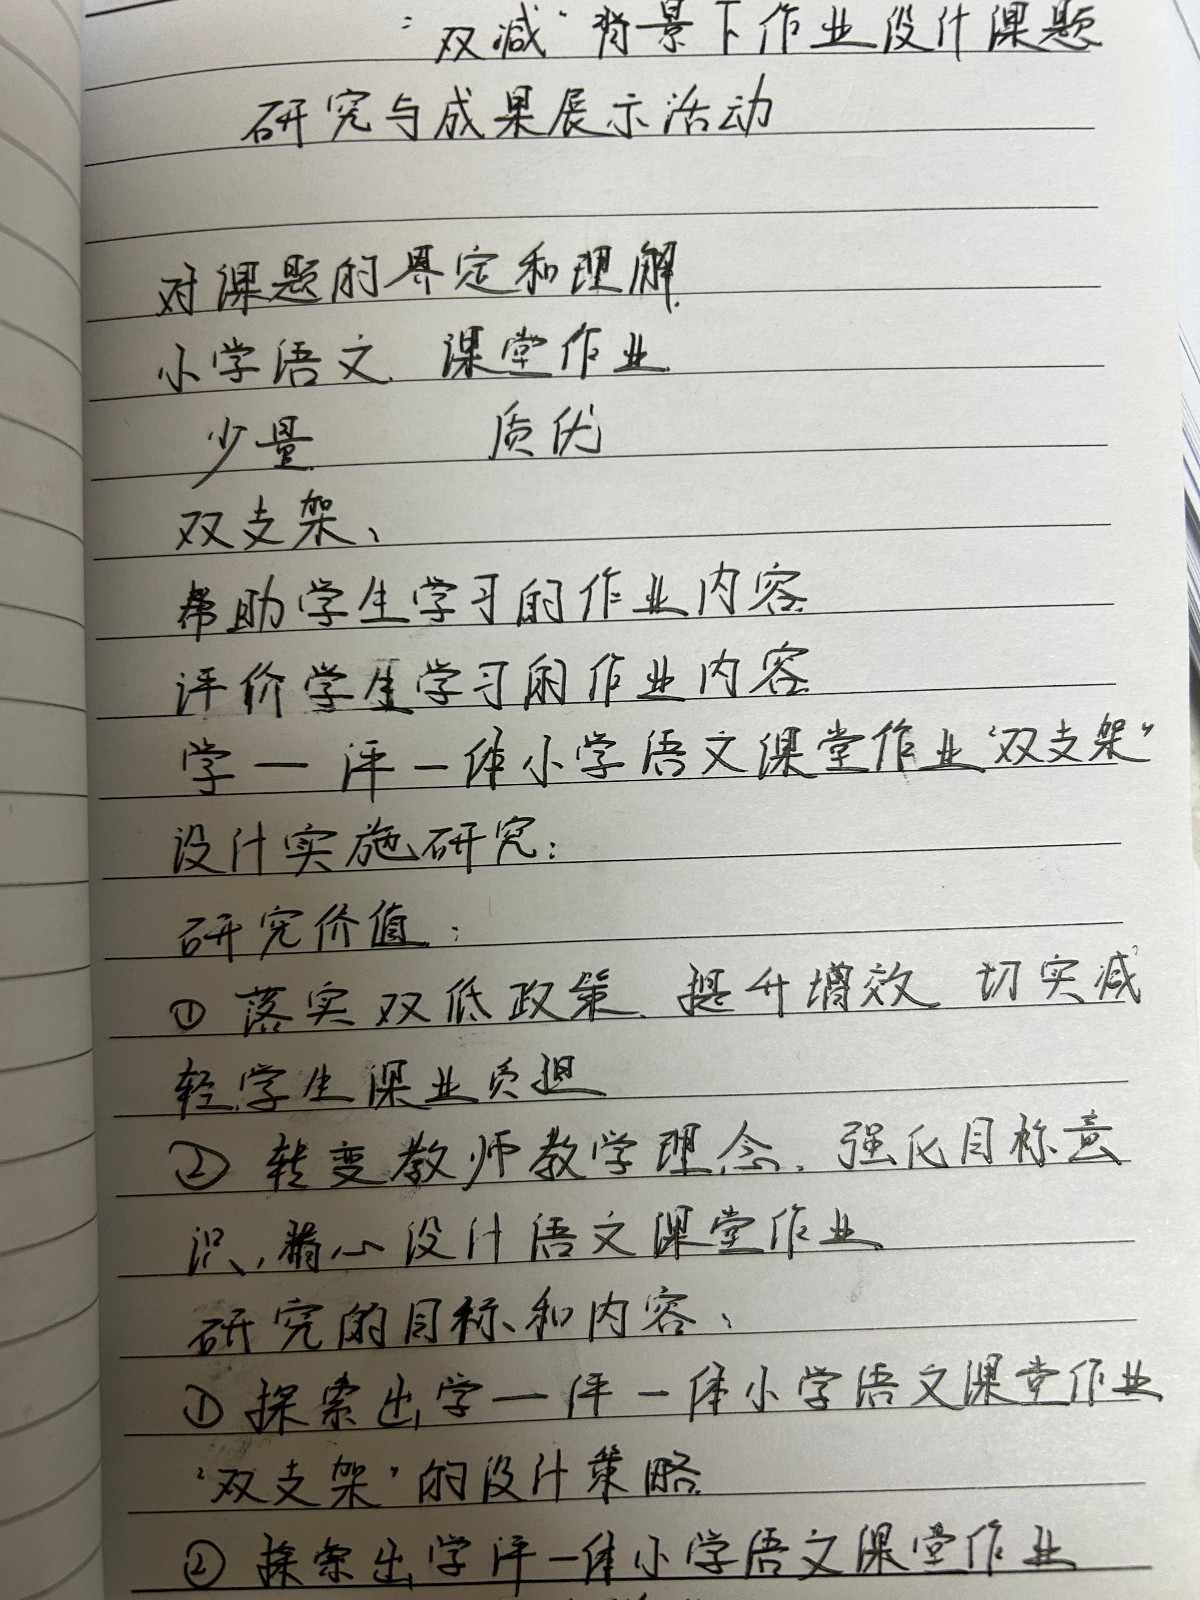 “双减”背景下作业设计课题
研究与成果展示活动
对课题的界定和理解
小学语文、课堂作业
少量 质优
双支架、
帮助学生学习的作业内容
评价学生学习的作业内容
学一评一体小学语文课堂作业“双支架”
设计实施研究：
研究价值：
①落实双低政策、提升增效、切实减
轻学生课业负担
②转变教师教学理念、强化目标意
识，精心设计语文课堂作业
研究的目标和内容：
①探索出学一评一体小学语文课堂作业
‘双支架’的设计策略
②探索出学评一体小学语文课堂作业